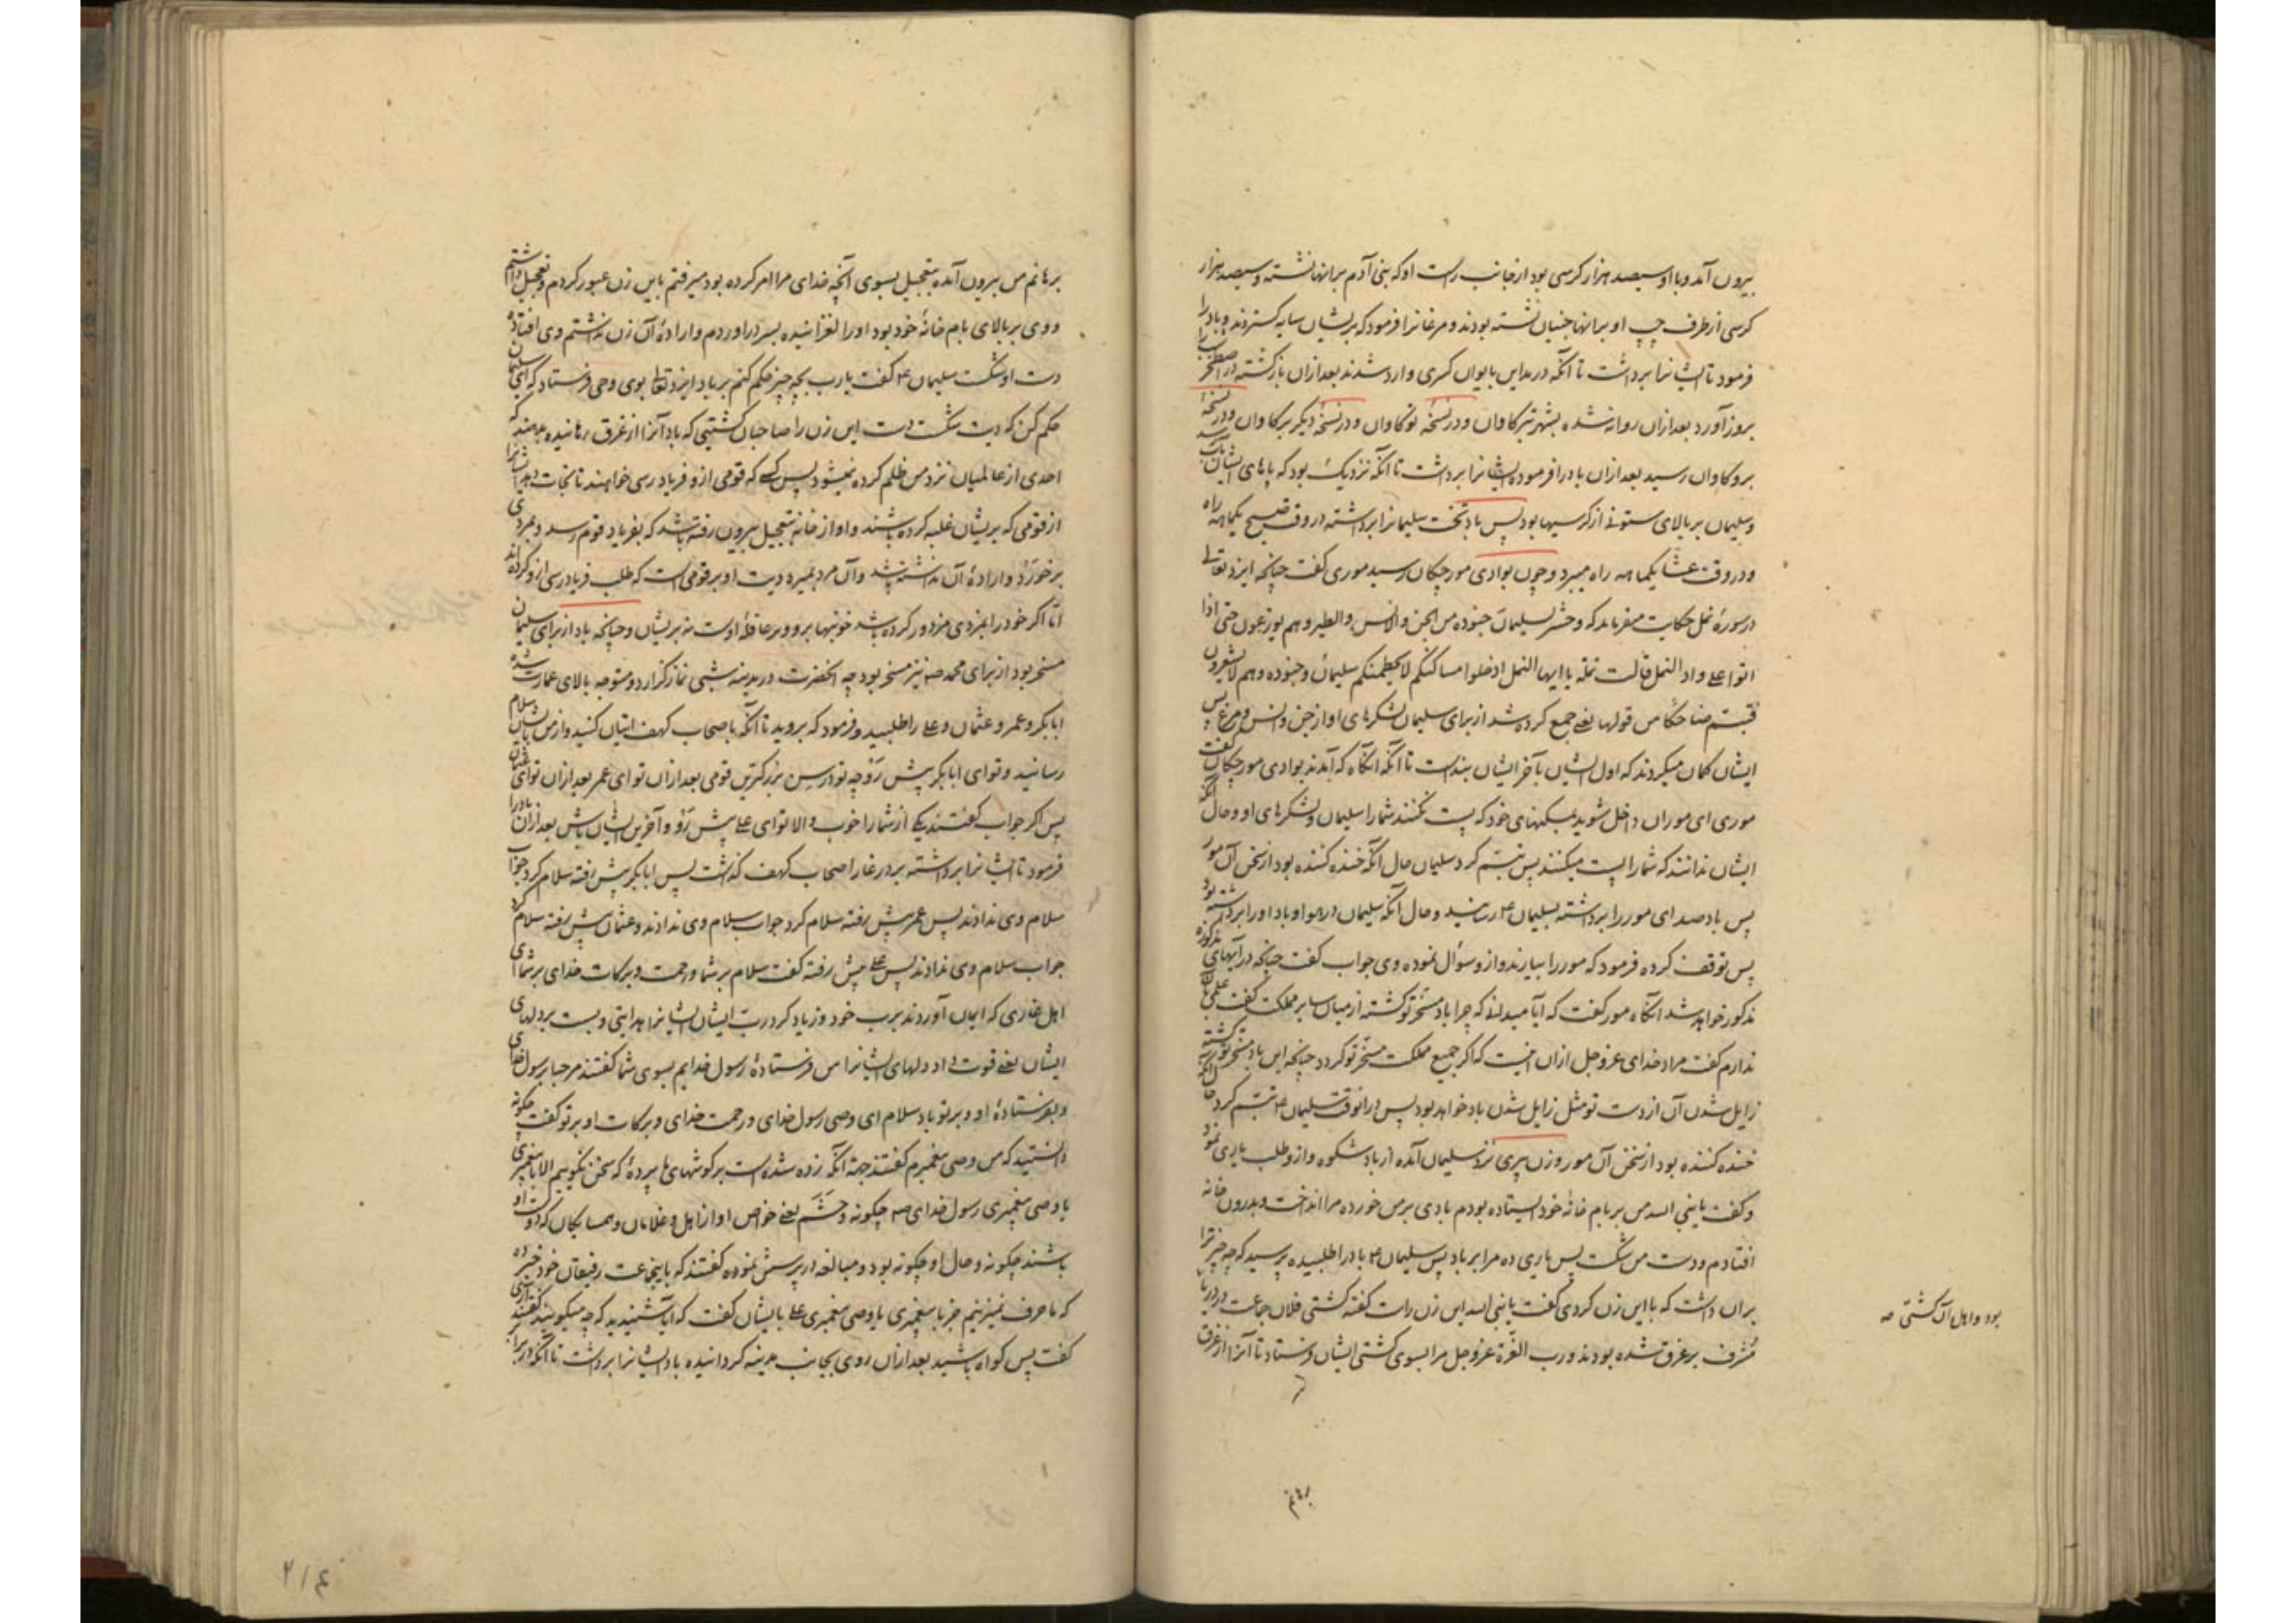 بیرون آمد و با او سیصد هزار کرسی بود از جانب راست او که بنی آدم برانها نشسته و سیصد هزار
کرسی از طرف چپ او برانها جنیان نشسته بودند و مرغانرا فرمود که بریشان سایه کستردند و باد را
فرمود تا ایشانرا برداشت تا آنکه در مداین بایوان کسری وارد شدند بعد ازان بازکشته در اصطخر
بروز آورد بعد ازان روانه شده بشهر تبرکاوان و در نسخهٔ نوکاوان و در نسخهٔ دیکر برکاوان و در نسخهٔ
بروکاوان رسید بعد ازان باد را فرموده ایشانرا برداشت تا آنکه نزدیک بود که پاهای ایشان بآب رسد
و سلیمان بر بالای ستونی از کرسیها بود پس باد تخت سلیمانرا برداشته در وقت صبح یکماهه راه
و در وقت عشا یکماهه راه میبرد و چون بوادی مورچکان رسید موری کفت چنانچه ایزد تعالی
در سورهٔ نمل حکایت میفرماید که و حشر لسلیمان جنوده من الجن والانس والطیر وهم یوزعون حتی اذا
اتوا علی واد النمل قالت نملة یا ایها النمل ادخلوا مساکنکم لا یحطمنکم سلیمان وجنوده وهم لا یشعرون
فتبسّم ضاحکا من قولها یعنی جمع کرده شد از برای سلیمان لشکرهای او از جن و انس و مرغ پس
ایشان کمان میکردند که اول ایشان بآخر ایشان بندست تا آنکه انکاه که آمدند بوادی مورچکان کفت
موری ای موران داخل شوید بمسکنهای خود که پست نکنند شما را سلیمان و لشکرهای او و حال آنکه
ایشان ندانند که شما را پست میکنند پس تبسّم کرد سلیمان حال آنکه خنده کننده بود از سخن آن مور
پس باد صدای مور را برداشته بسلیمان ع رسانید و حال آنکه سلیمان در هوا و باد او را برداشته بود
پس توقف کرده فرمود که مور را بیارند و از و سؤال نموده وی جواب کفت چنانچه در آیهای مذکوره
مذکور خواهد شد انکاه مور کفت که آیا میدانی که چرا باد مسخّر تو کشته از میان سایر مملکت کفت علمی بآن
ندارم کفت مراد خدای عزوجل ازان اینست که اکر جمیع مملکت مسخّر تو کردد چنانچه این باد مسخر تو کشته
زایل شدن آن از دست تو مثل زایل شدن باد خواهد بود پس درانوقت سلیمان ع تبسّم کرد حال آنکه
خنده کننده بود از سخن آن مور و زن پیری نزد سلیمان آمده از باد شکوه و از و طلب یاری نمود
و کفت یا نبی الله من بر بام خانهٔ خود ایستاده بودم بادی برمن خورده مرا انداخت و بدرون خانه
افتادم و دست من شکست پس یاری ده مرا بر باد پس سلیمان ع باد را طلبیده پرسید که چه چیز ترا
بران داشت که با این زن کردی کفت یا نبی الله این زن راست کفته کشتی فلان جماعت در دریا
مُشرف بر غرق شده بودند و رب العزّة عزوجل مرا بسوی کشتی ایشان فرستاد تا آنرا از غرق
بود و اهل آن کشتی صه
برهانم
برهانم من بیرون آمده بتعجیل بسوی آنچه خدای مرا امر کرده بود میرفتم باین زن عبور کردم و تعجیل داشتم
و وی بر بالای بام خانهٔ خود بود او را لغزانیده بسر دراوردم و ارادهٔ آن زن نداشتم وی افتاده
دست او شکست سلیمان ع کفت یا رب بچه چیز حکم کنم بر باد ایزد تعالی بوی وحی فرستاد که ای سلیمان
حکم کن که دیت شکست دست این زن را صاحبان کشتیی که باد آنرا از غرق رهانیده بدهند که
احدی از عالمیان نزد من ظلم کرده نمیشود پس کسی که قومی از و فریادرسی خواهند تا نجات دهد ایشانرا
از قومی که بریشان غلبه کرده باشند و او از خانه بتعجیل بیرون رفته باشد که بفریاد قوم رسد و بمردی
برخورَد و ارادهٔ آن نداشته باشد و آن مرد بمیرد دیت او بر قومی است که طلب فریادرسی از و کرده‌اند
اما اکر خود را بمزدی مزدور کرده باشد خونبها برو و بر عاقلهٔ اوست نه بریشان و چنانچه باد از برای سلیمان
مسخر بود از برای محمد صه نیز مسخر بود چه آنحضرت در مدینه شبی نماز کزارد و متوجه بالای عمارت شده
ابابکر و عمر و عثمان و علی را طلبید و فرمود که بروید تا آنکه باصحاب کهف اتیان کنید و از من بایشان سلام
رسانید و تو ای ابابکر پیش رَوْ چه تو در سِن بزرکترین قومی بعد ازان تو ای عمر بعد ازان تو ای عثمان
پس اکر جواب کفتند یکی از شما را خوب و الا تو ای علی پیش رَوْ و آخرین ایشان باش بعد ازان باد را
فرمود تا ایشانرا برداشته بر در غار اصحاب کهف کذاشت پس ابابکر پیش رفته سلام کرد جواب
سلام وی ندادند پس عمر پیش رفته سلام کرد جواب سلام وی ندادند و عثمان پیش رفته سلام کرد
جواب سلام وی ندادند پس علی پیش رفته کفت سلام بر شما و رحمت و برکات خدای بر شما ای
اهل غاری که ایمان آوردند برب خود و زیاد کرد رب ایشان ایشانرا هدایتی و بست بر دلهای
ایشان یعنی قوت داد دلهای ایشانرا من فرستادهٔ رسول خدایم بسوی شما کفتند مرحبا برسول خدای
و بفرستادهٔ او و بر تو باد سلام ای وصی رسول خدای و رحمت خدای و برکات او بر تو کفت چکونه
دانستید که من وصی پیغمبرم کفتند جهة آنکه زده شده است بر کوشهای ما پردهٔ که سخن نکوییم الا با پیغمبری
یا وصی پیغمبری رسول خدای صه چکونه و حَشَم یعنی خواص او از اهل و غلامان و همسایکان که دوست او
باشند چکونه و حال او چکونه بود و مبالغه در پرسش نموده کفتند که باینجماعت رفیقان خود خبر ده
که ما حرف نمیزنیم جز با پیغمبری یا وصی پیغمبری علی بایشان کفت که آیا شنیدید که چه میکویند کفتند آری
کفت پس کواه باشید بعد ازان روی بجانب مدینه کردانیده باد ایشانرا برداشت تا آنکه در برابر
۲۱۴